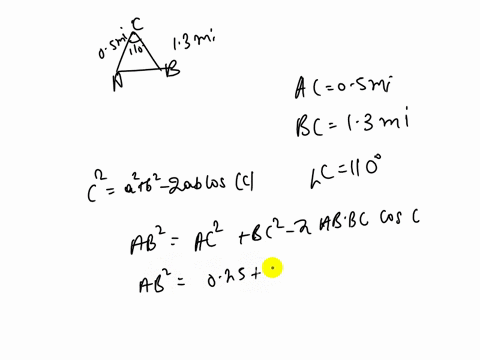 C
0.5mi
110
1.3mi
A
B
AC=0.5mi
BC=1.3mi
∠C=110°
C²=a²+b²-2abcos(C)
AB²=AC²+BC²-2AB·BC cos C
AB²=0.25+